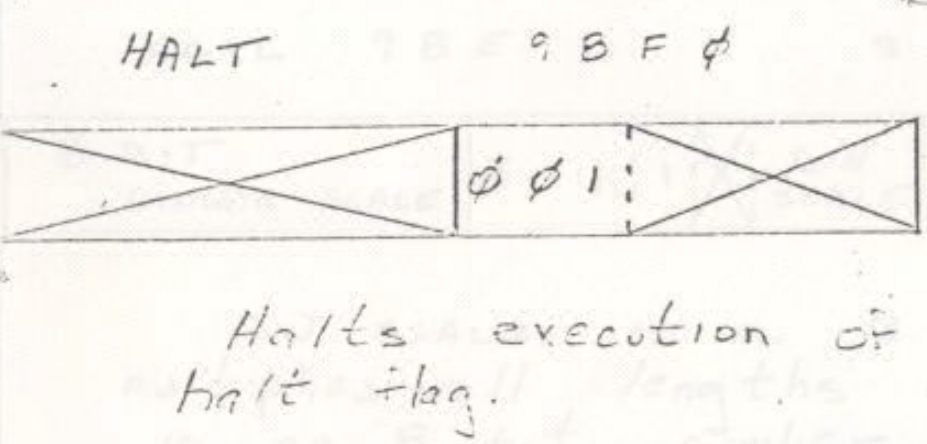 HALT 9 8 F Ø
Ø Ø 1
Halts execution of
halt flag.